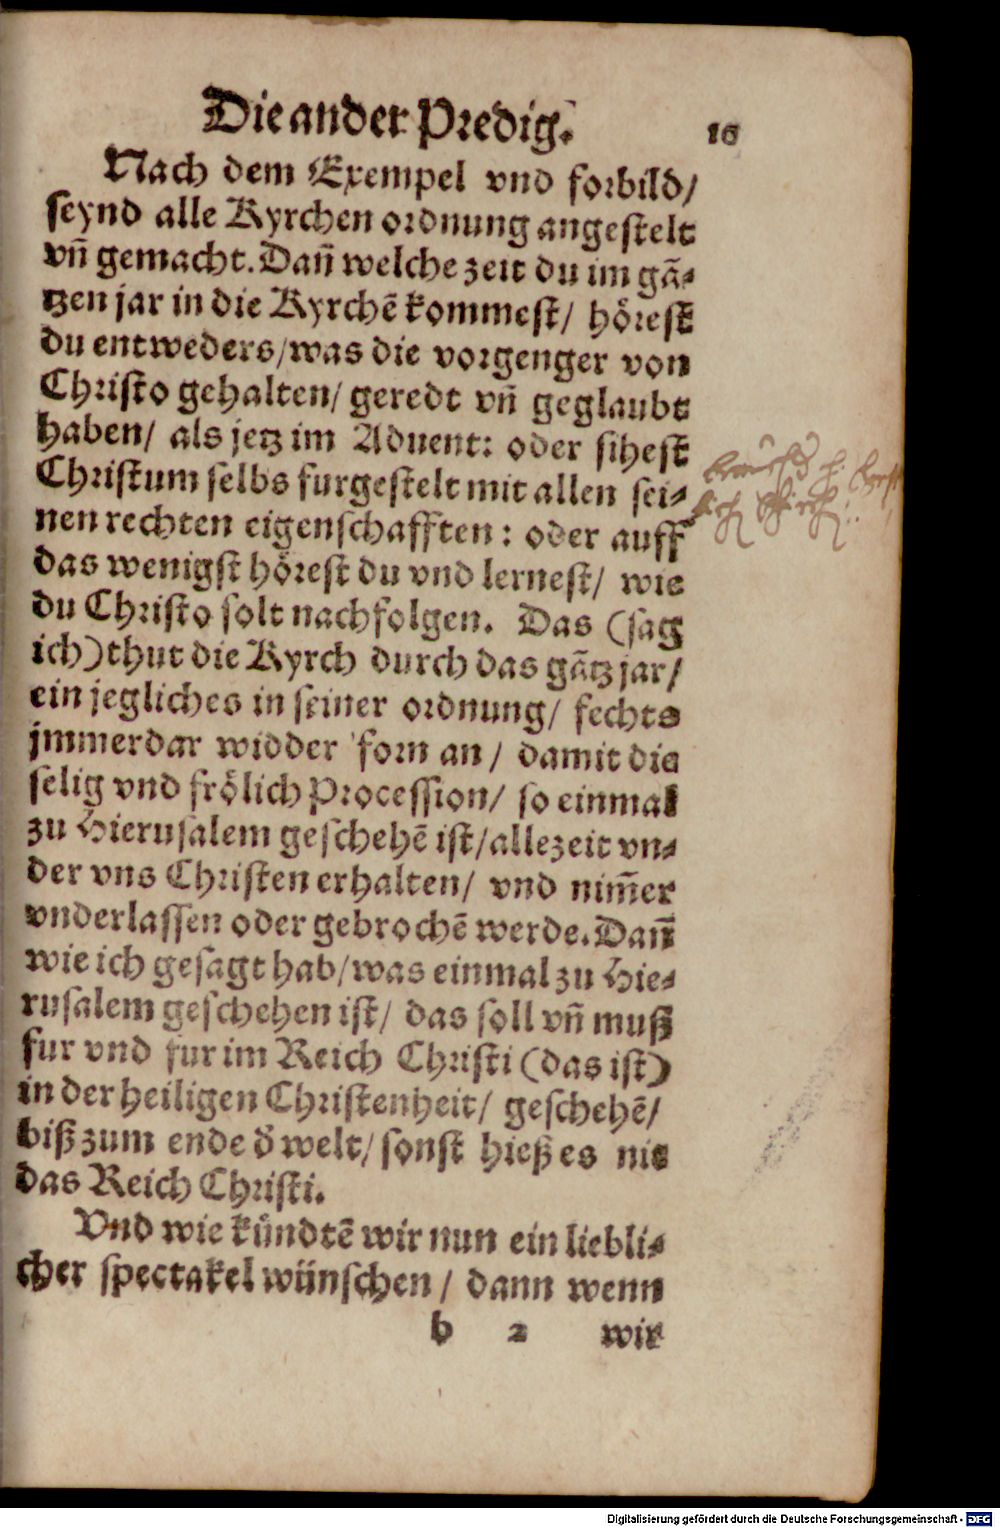 Die ander Predig. 16
Nach dem Exempel vnd forbild/
seynd alle Kyrchen ordnung angestelt
vñ gemacht. Dañ welche zeit du im gã-
tzen jar in die Kyrchẽ kommest/ hörest
du entweders/was die vorgenger von
Christo gehalten/ geredt vñ geglaubt
haben/ als jetz im Aduent: oder sihest
Christum selbs furgestelt mit allen sei-
nen rechten eigenschafften: oder auff
das wenigst hörest du vnd lernest/ wie
du Christo solt nachfolgen. Das (sag
ich) thut die Kyrch durch das gãtz jar/
ein jegliches in seiner ordnung/ fechts
jmmerdar widder forn an/ damit die
selig vnd frölich Procession/ so einmal
zu Hierusalem geschehẽ ist/allezeit vn-
der vns Christen erhalten/ vnd nim̃er
vnderlassen oder gebrochẽ werde. Dañ
wie ich gesagt hab/was einmal zu Hie-
rusalem geschehen ist/ das soll vñ muß
fur vnd fur im Reich Christi (das ist)
in der heiligen Christenheit/ geschehẽ/
biß zum ende d̕ welt/ sonst hieß es nit
das Reich Christi.
Vnd wie kündtẽ wir nun ein liebli-
cher spectakel wünschen/ dann wenn
b 2 wir
Digitalisierung gefördert durch die Deutsche Forschungsgemeinschaft - DFG